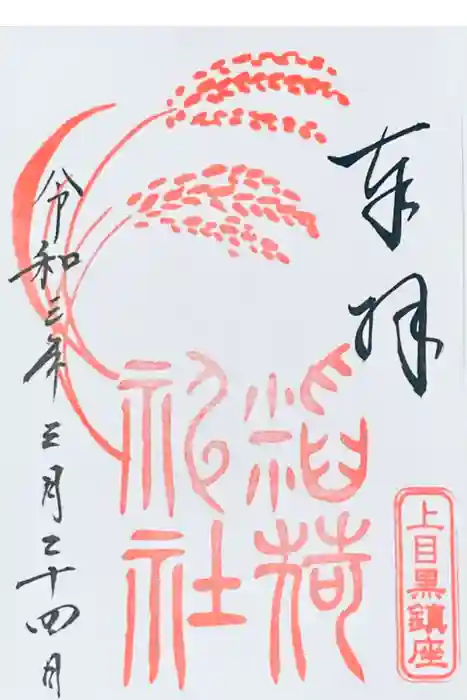 奉拝
上目黒鎮座
稲荷
神社
令和三年三月二十四日